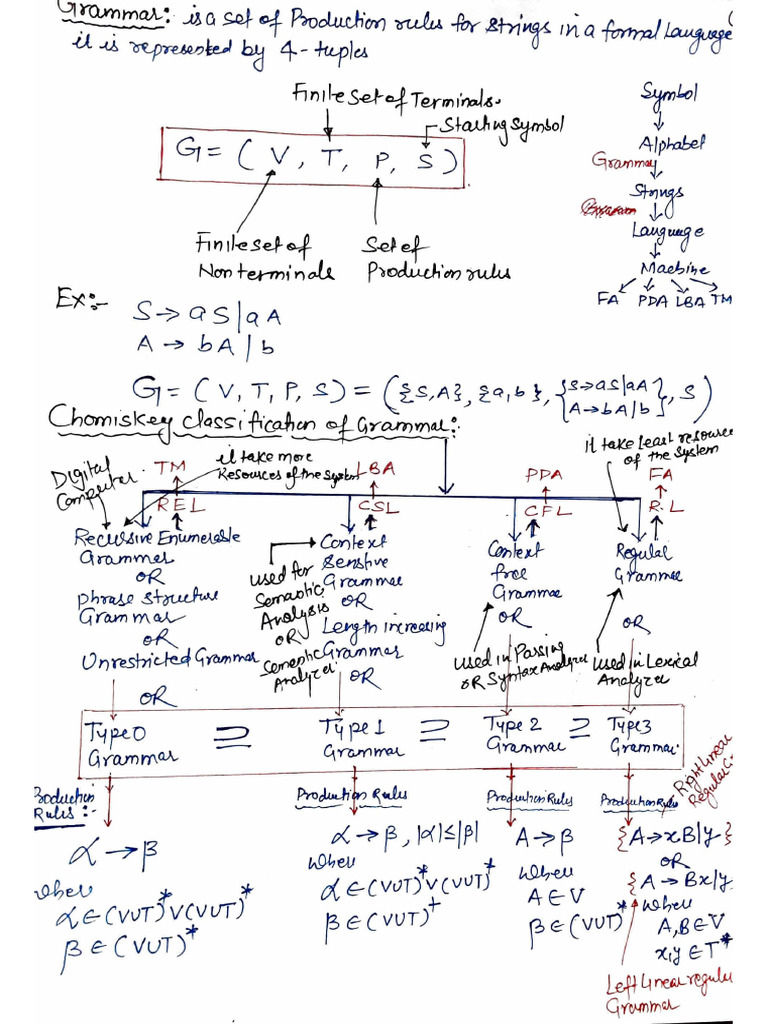 Grammar: is a set of Production rules for strings in a formal Language
it is represented by 4-tuples
Finite set of Terminals.
Starting Symbol
G = ( V, T, P, S )
Finite set of
Non terminals
Set of
Production rules
Symbol
Alphabet
Grammar
Strings
Language
Machine
FA PDA LBA TM
Ex:-
S → aS | aA
A → bA | b
G = ( V, T, P, S ) = ( {S,A}, {a,b}, {S→aS|aA
A→bA|b}, S )
Chomiskey classification of Grammar:
it take least resource
of the System
Digital
Computer.
it take more
Resources of the System
TM LBA PDA FA
REL CSL CFL R.L
Recursive Enumerable
Grammar
OR
Phrase Structure
Grammar
OR
Unrestricted Grammar
OR
Context
Sensitive
Grammar
OR
Length increasing
Grammar
OR
used for
Semaotic
Analysis
OR
Sementic
Analyzer.
Context
free
Grammar
OR
used in Passing
OR Syntax Analyzer
Regular
Grammar
OR
used in Lexical
Analyzer
Type 0
Grammar
⊇
Type 1
Grammar
⊇
Type 2
Grammar
⊇
Type 3
Grammar.
Right Linear
Production
Rules:-
α → β
where
α ∈ (VUT)* V (VUT)*
β ∈ (VUT)*
Production Rules
α → β, |α| ≤ |β|
when
α ∈ (VUT)* V (VUT)*
β ∈ (VUT)+
Production Rules
A → β
when
A ∈ V
β ∈ (VUT)*
Production Rules
{A → xB|y}
OR
{A → Bx|y
when
A,B ∈ V
x,y ∈ T*
Left linear regular
Grammar